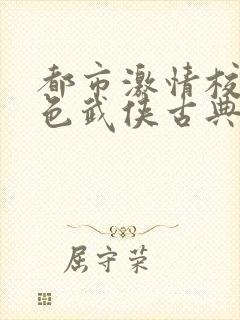 都市激情校
色武侠古典
屈守荣